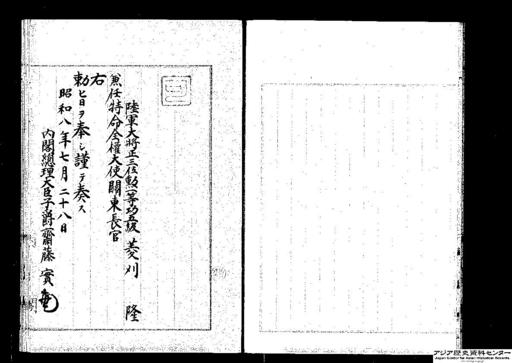 陸軍大将正三位勲一等功五級 菱刈 隆
兼任特命全権大使関東長官
右
勅旨ヲ奉シ謹テ奏ス
昭和八年七月二十八日
内閣總理大臣子爵齋藤 實
アジア歴史資料センター
Japan Center for Asian Historical Records